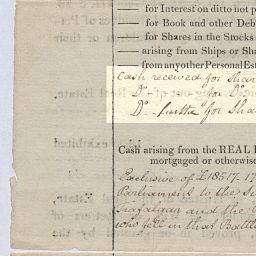 for Interest on ditto not p
for Book and other Deb
for Shares in the Stocks
arising from Ships or Sha
from any other Personal Esta
Cash received for Shar
Do. Do. for Do.
Do. further for Sha
Cash arising from the REAL
mortgaged or otherwise
Exclusive of £18517. 17
Parliament to the
Trafalgar and the
who fell in that Battl